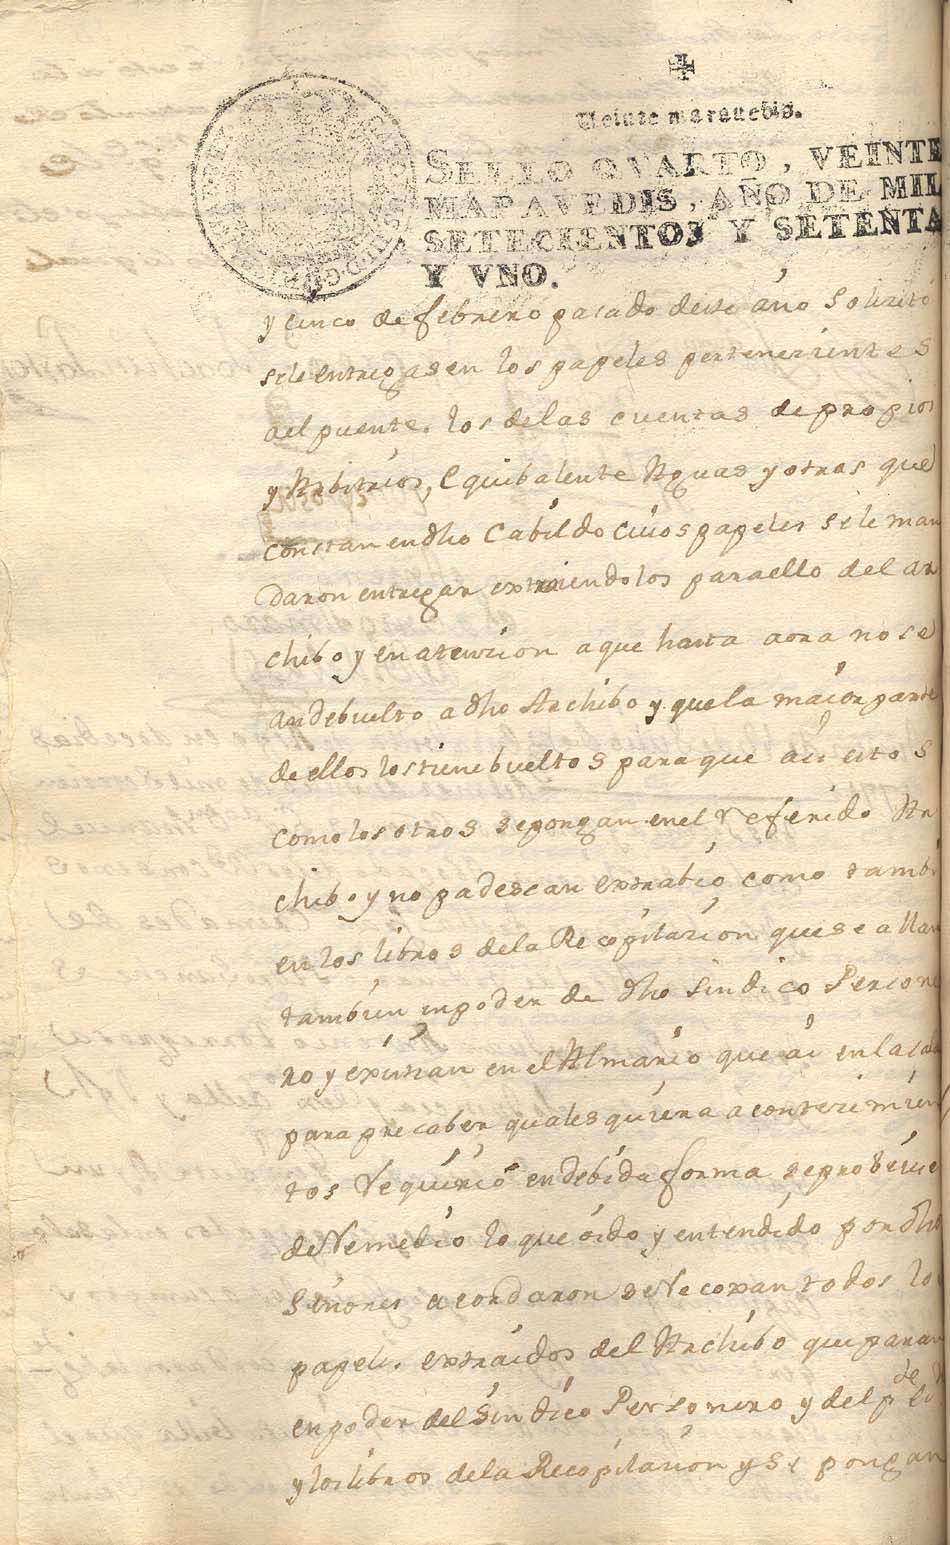 Veinte marauedis.
SELLO QVARTO, VEINTE
MARAVEDIS, AÑO DE MIL
SETECIENTOS Y SETENTA
Y VNO.
y cinco de febrero pasado deste año Solizitó
sele entregasen los papeles pertenezientes
ael puente. los delas cuentas depropios
y Arbitrios, Equibalente Aguas y otras que
constan en dho Cabildo cuios papeles sele man
daron entregar extraiendolos para ello del ar
chibo y en atenzion aque hasta aora nose
an debuelto adho Archibo y quela maior parte
de ellos los tiene bueltos para que asi estos
como los otros sepongan enel referido Ar
chibo y no padescan extrabio como tambi
en los libros dela Recopilazion que se allan
tambien en poder de dho Sindico Persone
ro y existan en el Almario que ai en la sala
para precaber qualesquiera acontezimien
tos requirio en debida forma se probeiese
de Remedio lo que oido y entendido por dhos
Señores acordaron se Recoxan todos lo
papeles. extraidos del Archibo que paran
en poder del Sindico Personero y del
y los libros dela Recopilazion y se pongan